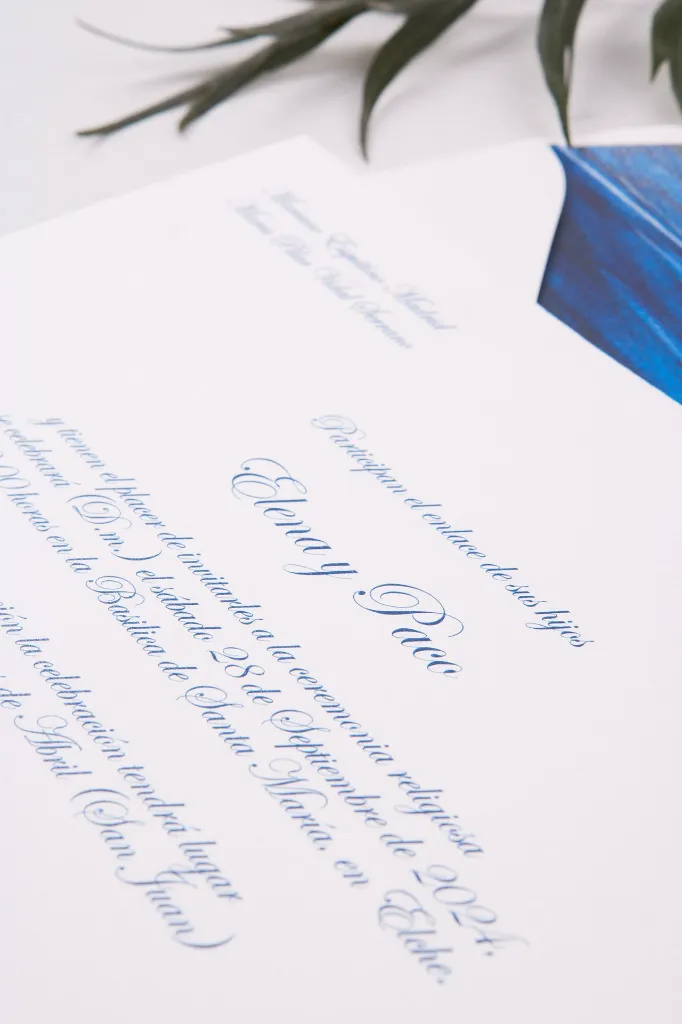 Participan el enlace de sus hijos
Elena y Paco
y tienen el placer de invitarles a la ceremonia religiosa
celebrará (D.m.) el sábado 28 de Septiembre de 2024,
horas en la Basílica de Santa María, en Elche.
la celebración tendrá lugar
de Abril (San Juan)